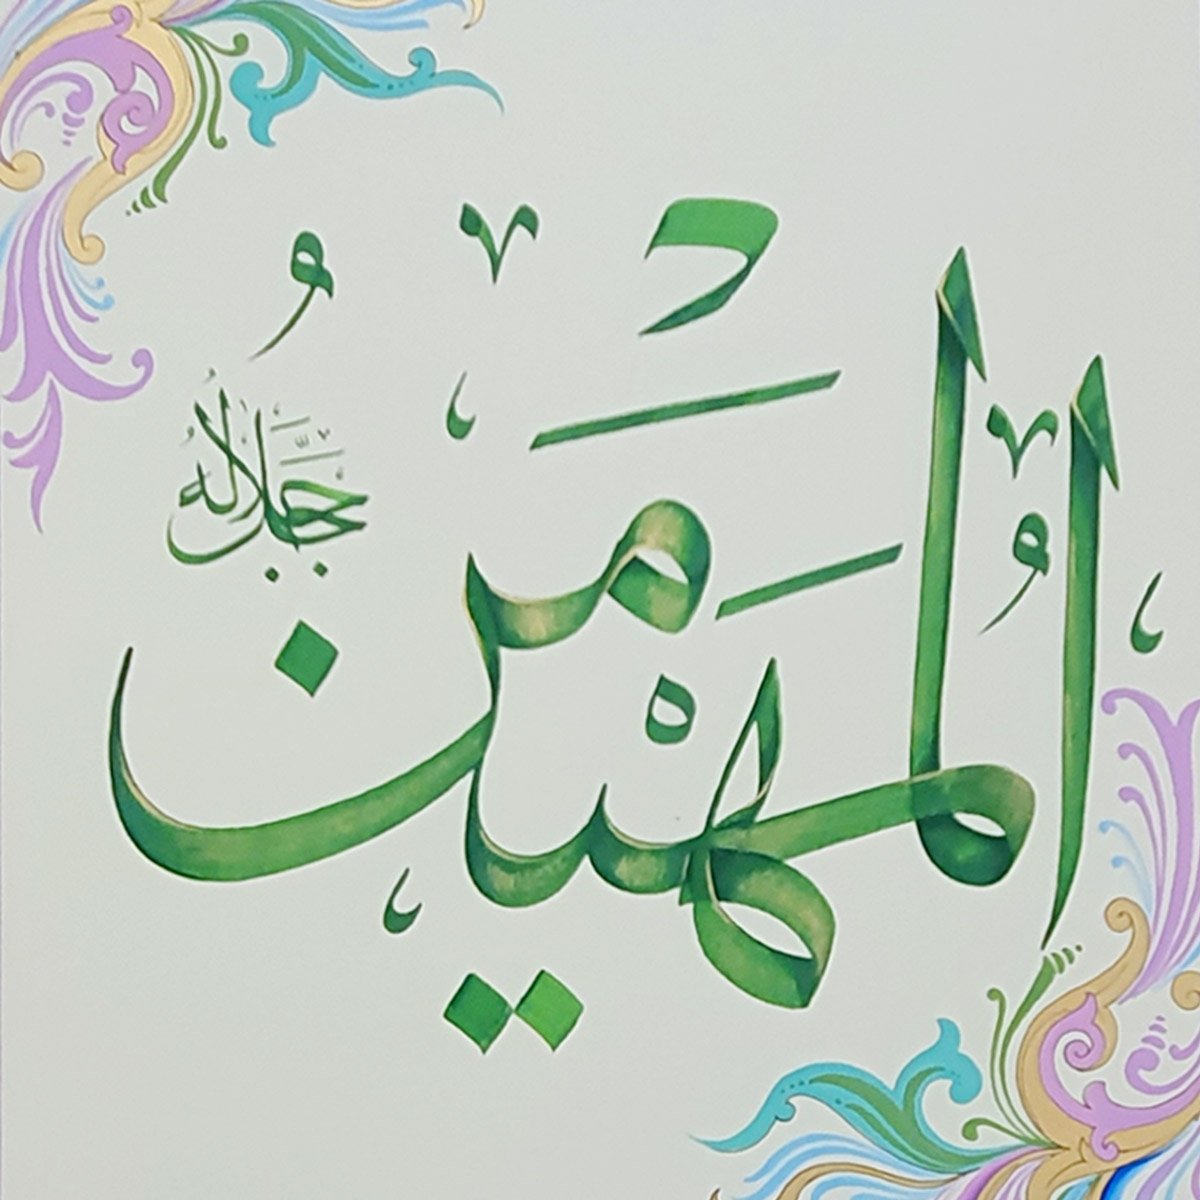 المهيمن
جل جلاله